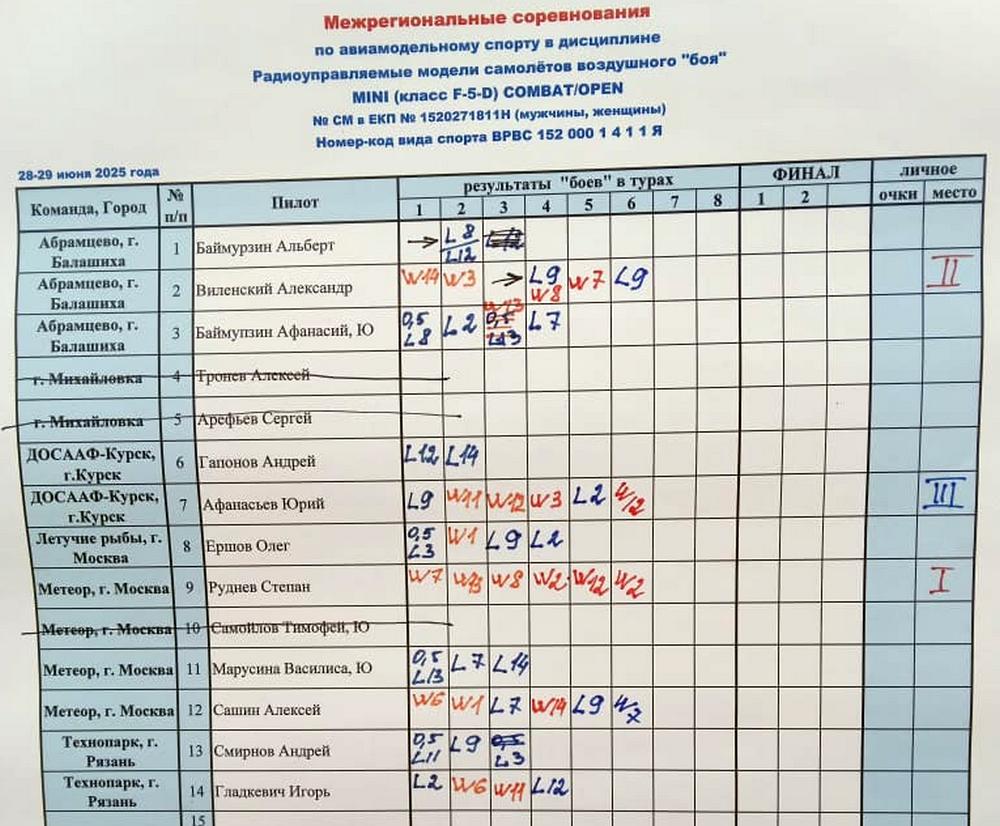 Межрегиональные соревнования
по авиамодельному спорту в дисциплине
Радиоуправляемые модели самолётов воздушного "боя"
MINI (класс F-5-D) COMBAT/OPEN
№ СМ в ЕКП № 1520271811Н (мужчины, женщины)
Номер-код вида спорта ВРВС 152 000 1 4 1 1 Я
28-29 июня 2025 года
Команда, Город № п/п Пилот результаты "боев" в турах ФИНАЛ личное
1 2 3 4 5 6 7 8 1 2 очки место
Абрамцево, г. Балашиха 1 Баймурзин Альберт → L8 L12
Абрамцево, г. Балашиха 2 Виленский Александр W14 W3 → L9 W8 W7 L9 II
Абрамцево, г. Балашиха 3 Баймупзин Афанасий, Ю 0,5 L8 L2 W13 0,5 L13 L7
г. Михайловка 4 Тронев Алексей
г. Михайловка 5 Арефьев Сергей
ДОСААФ-Курск, г.Курск 6 Гапонов Андрей L12 L14
ДОСААФ-Курск, г.Курск 7 Афанасьев Юрий L9 W11 W12 W3 L2 W12 III
Летучие рыбы, г. Москва 8 Ершов Олег 0,5 L3 W1 L9 L2
Метеор, г. Москва 9 Руднев Степан W7 W13 W8 W2 W12 W2 I
Метеор, г. Москва 10 Самойлов Тимофей, Ю
Метеор, г. Москва 11 Марусина Василиса, Ю 0,5 L13 L7 L14
Метеор, г. Москва 12 Сашин Алексей W6 W1 L7 W14 L9
Технопарк, г. Рязань 13 Смирнов Андрей 0,5 L11 L9 0,5 L3
Технопарк, г. Рязань 14 Гладкевич Игорь L2 W6 W11 L12
15